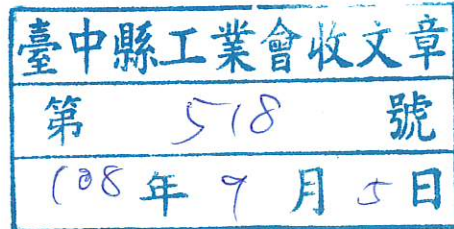 臺中縣工業會收文章
第 518 號
108年9月5日